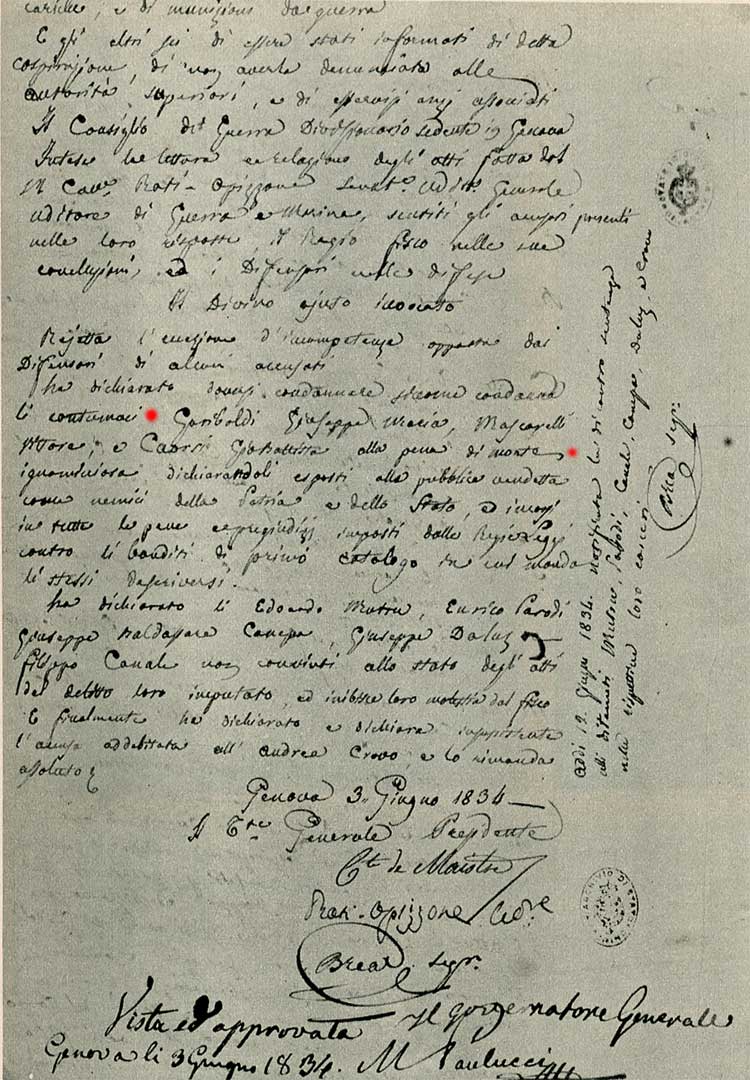 cariche, e di munizioni da guerra
E gli altri sei di essere stati informati di detta
cospirazione, di non averla denunciata alle
autorità superiori, e di esservisi anzi associati
Il Consiglio di Guerra Divisionario sedente in Genova
Intesa la lettura e relazione degli atti fatta dal
Sr Cavre Rati-Opizzone Generale
Uditore di Guerra e Marina, sentiti gli accusati presenti
nelle loro risposte, il Regio fisco nelle sue
conclusioni, ed i Difensori nelle difese
Il Divino ajuto invocato
Rejetta l'eccezione d'incompetenza opposta dai
Difensori di alcuni accusati
ha dichiarato doversi condannare siccome condanna
li contumaci Garibaldi Giuseppe Maria, Mascarelli
Vittore, e Caorsi Gio Battista alla pena di morte
ignominiosa dichiarandoli esposti alla pubblica vendetta
come nemici della Patria e dello Stato, e incorsi
in tutte le pene e pregiudizj imposti dalle Regie Leggi
contro li banditi di primo catalogo in cui manda
li stessi descriversi.
ha dichiarato li Edoardo Mutru, Enrico Parodi
Giuseppe Baldassare Canepa, Giuseppe Dalus
Filippo Canale non convinti allo stato degli atti
del delitto loro imputato, ed inibisce loro molestia dal fisco
E finalmente ha dichiarato e dichiara
l'accusa addebitata all'Andrea Crovo, e lo rimanda
assoluto
Genova 3. Giugno 1834
Il Tte Generale Presidente
Cte de Maistre
Rati-Opizzone
Brea Segr.
Vista ed approvata Il Governatore Generale
Genova li 3 Giugno 1834. M Paulucci
Addì 12. Giugno 1834. notificata la di contro sentenza
alli ditenuti Mutru, Parodi, Canale, Canepa, Dalus, e Crovo
nelle rispettive loro carceri
Brea Segr.